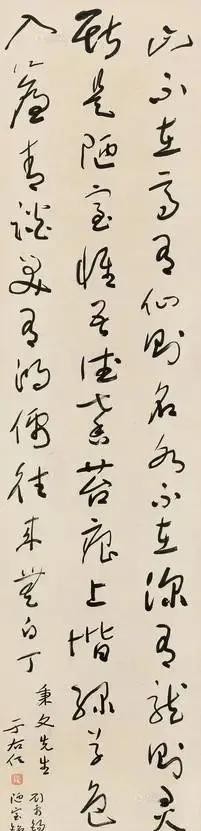 山不在高有仙則名水不在深有龍則灵
斯是陋室惟吾德馨苔痕上階綠草色
入簾青談笑有鴻儒往來無白丁
秉文先生
刘禹錫
陋室銘
于右任